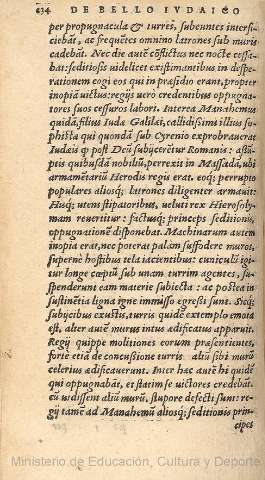 434 DE BELLO IVDAICO
per propugnacula & turres, subeuntes interfi-
ciebāt, ac frequētes omnino latrones sub muris
cadebāt. Nec die autē cōflictus nec nocte cessa-
bat: seditiosis videlicet existimantibus in despe-
rationem cogi eos qui in præsidio erant, propter
inopiā victus: regijs uero credentibus oppugna-
tores suos cessuros labori. Interea Manahemus
quidā, filius Iuda Galilæi, callidissimi illius so-
phistæ qui quondā sub Cyrenio exprobrauerat
Iudæis ꝙ post Deū subijcerētur Romanis: assū-
ptis quibusdā nobiliū, perrexit in Massadā, ubi
armamētariū Herodis regis erat. eoq; perrupto
populares aliosq; latrones diligenter armauit:
Hisq; utens stipatoribus, ueluti rex Hierosoly-
mam reuertitur: factusq; princeps seditionis,
oppugnationē disponebat. Machinarum autem
inopia erat, nec poterat palàm suffodere muros,
supernè hostibus tela iacientibus: cuniculū igi-
tur longè cœptū sub unam turrim agentes, su-
spenderunt eam materie subiecta: ac postea in
sustinētia ligna igne immisso egressi sunt. Sicq;
subijcibus exustis, turris quidē extemplo emota
est, alter autē murus intus ædificatus apparuit.
Regij quippe molitiones eorum præsentientes,
fortè etiā de concussione turris aliū sibi murū
celerius ædificauerunt. Inter hæc autē hi quidē
qui oppugnabāt, et statim se uictores credebāt.
cū uidissent aliū murū, stupore defecti sunt: re-
gij tamē ad Manahemū aliosq; seditionis prin-
cipes
Ministerio de Educación, Cultura y Deporte